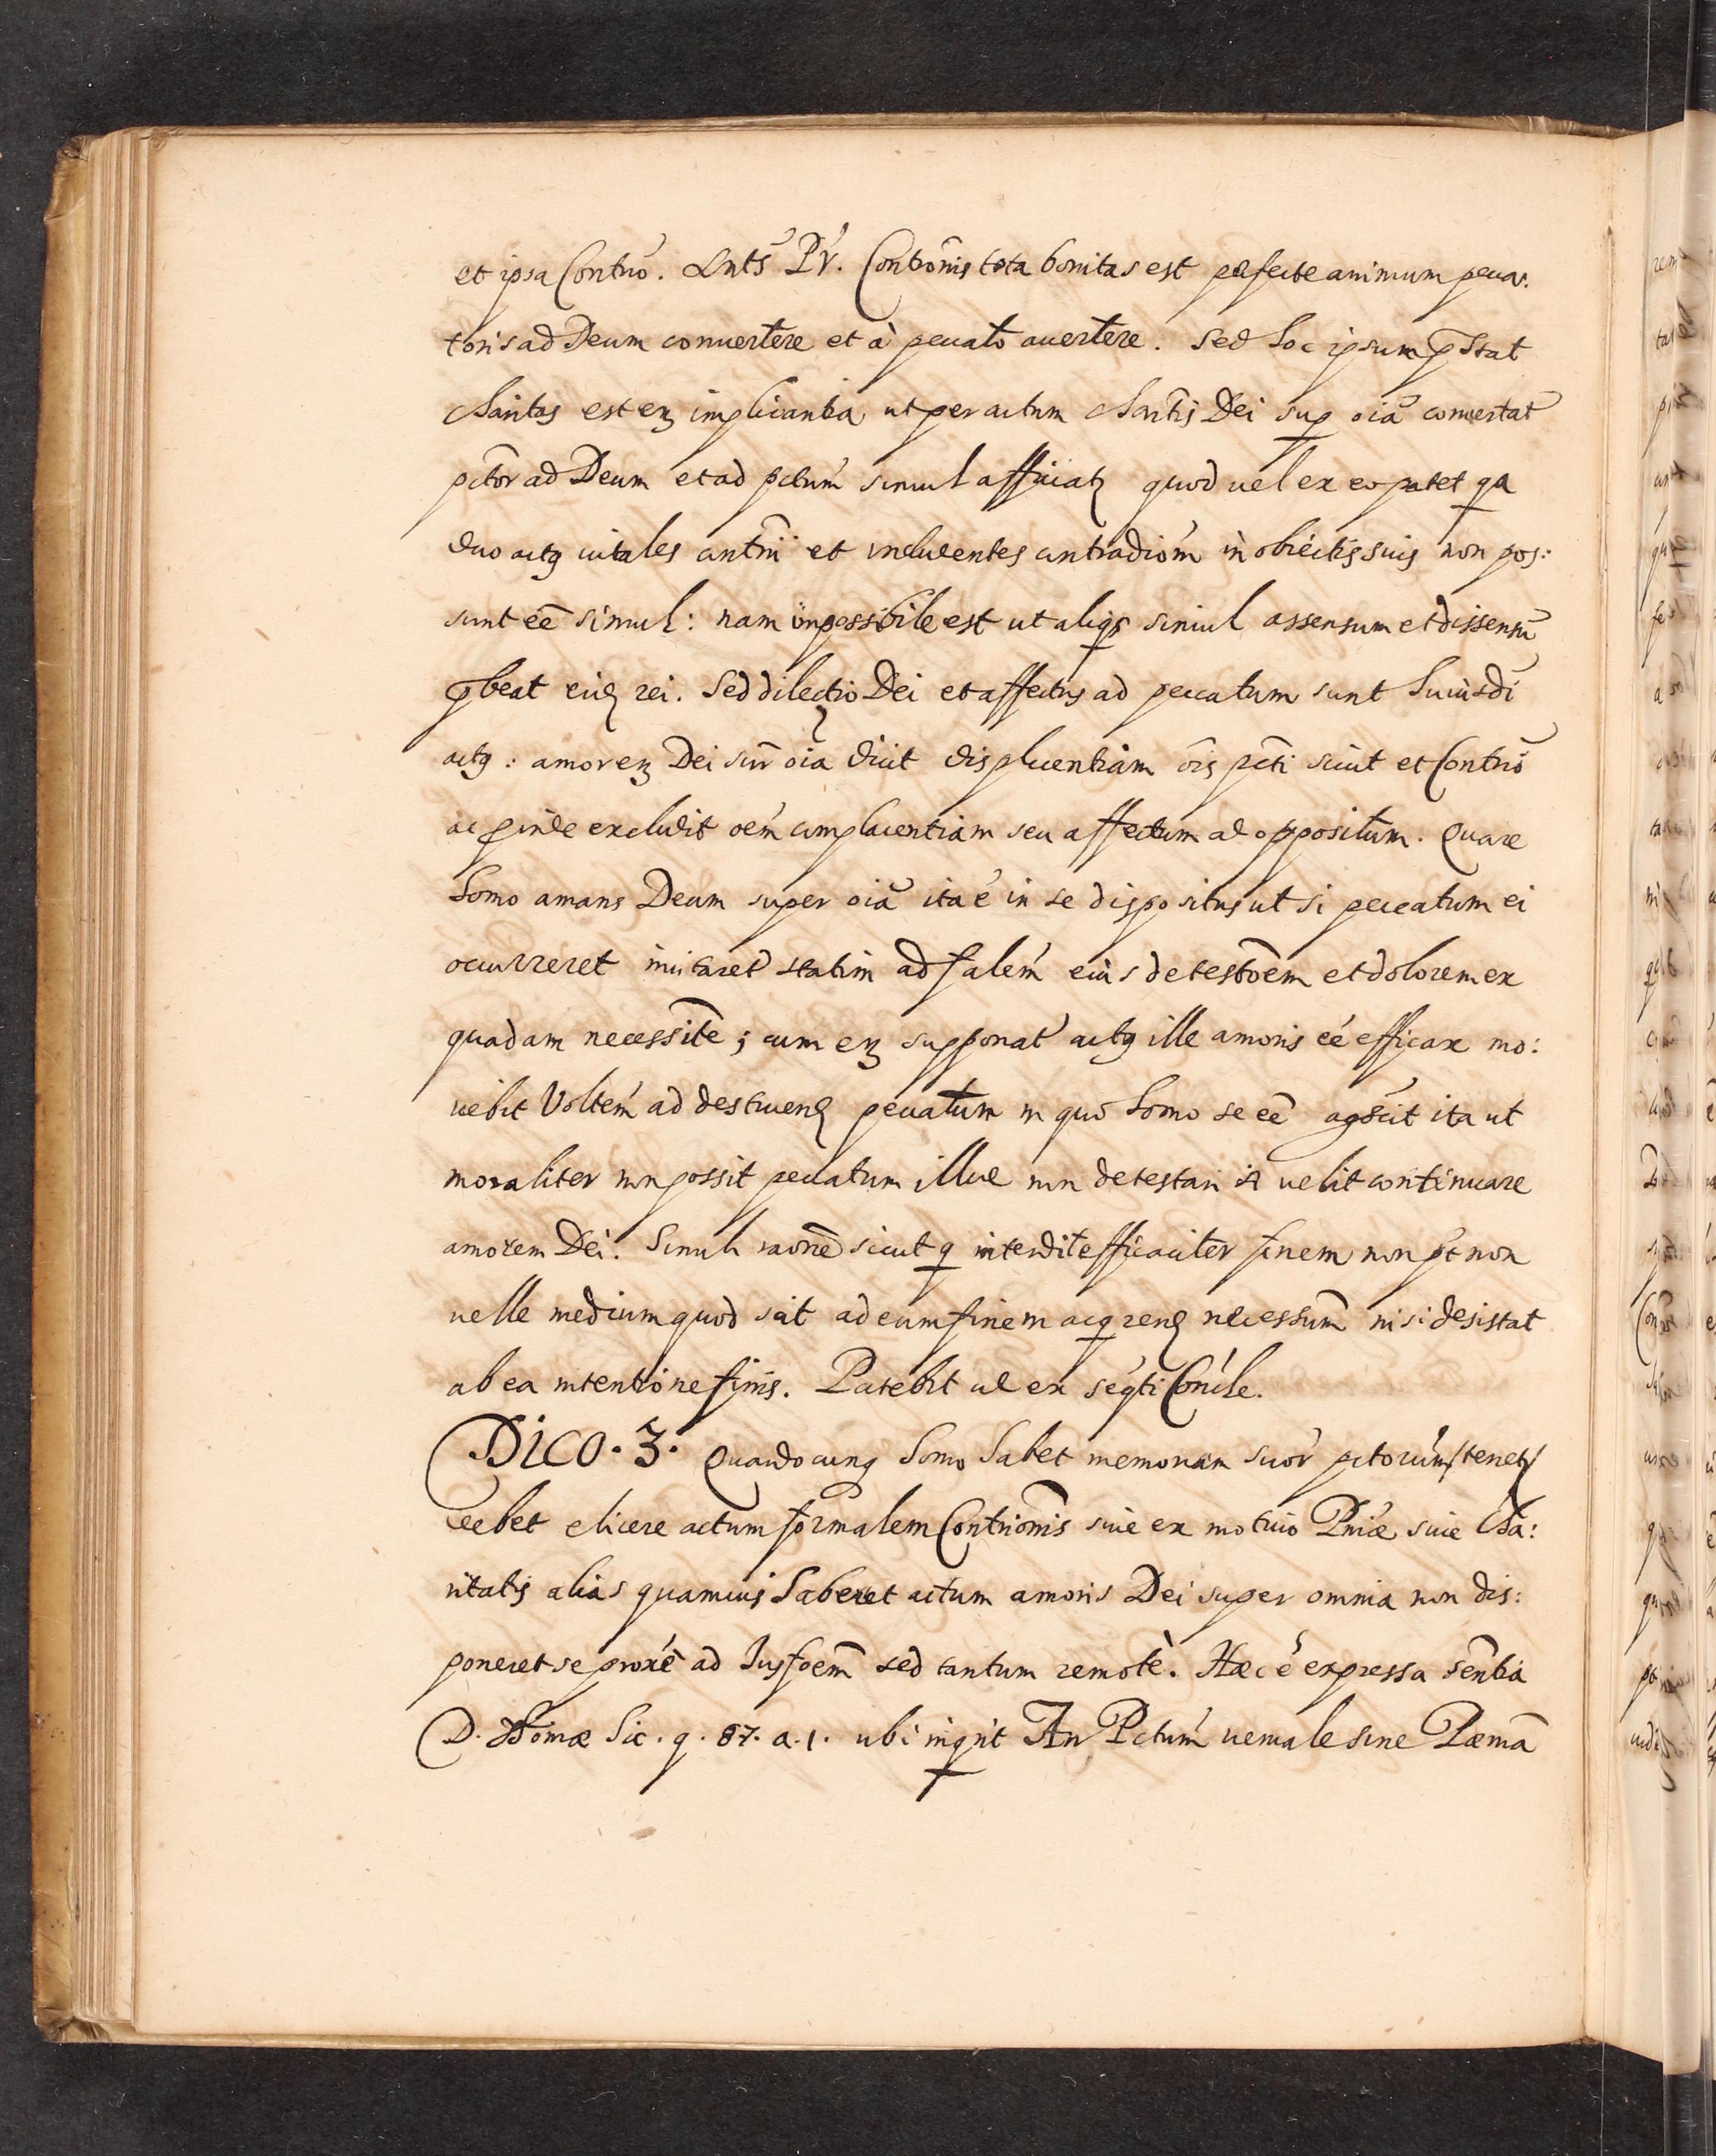 et ipsa Contrió. Ants Pr. Contrõnis tota bonitas est perfecte animum pecca:
toris ad Deum conuertere et à peccato auertere. Sed hoc ipsum pr̄stat
charitas est en̄ implicantia ut per actum charitis Dei sup oīa conuertat
pctor ad Deum et ad pctum simul afficiat quod uel ex eo patet qa
duo actq uitales contrii et includentes contradiom in obiectis suis non pos:
sunt eē simul: nam impossibile est ut aliqs simul assensum et dissensū
prbeat eidē rei. Sed dilectio Dei et affectus ad peccatum sunt huiusdi
actq: amor en̄ Dei supr oia dicit displicentiam ōis pcti sicut et Contriō
ac proinde excludit oem complacentiam seu affectum ad oppositum. Quare
homo amans Deum super oiā ita é in se dispositus ut si peccatum ei
occurreret incitaret statim ad falém eius detestōem et dolorem ex
quadam necessitē; cum en̄ supponat actq ille amoris eé efficax mo:
uebit Voltém ad destruend peccatum in quo homo se eē agscit ita ut
moraliter non possit peccatum illud non detestari si uelit continuare
amorem Dei. Simuli raonē sicut q intendit efficaciter finem non pt non
uelle medium quod scit ad eum finem acqrend necessum̄ nisi desistat
ab ea intentione finis. Patebit uel ex séqti Concle.
DICO. 3. Quandocunq homo habet memoriam suor pctorum /tenet/
debet elicere actum formalem Contrionis siue ex motiuo Pniæ siue Cha:
ritatis alias quamuis haberet actum amoris Dei super omnia non dis:
poneret se proxé ad Iusfoem̄ sed tantum remotè. Hæc é expressa sēntia
D. Thomæ hic. q. 87. a. 1. ubi inqrit An Pctum ueniale sine Pæniā